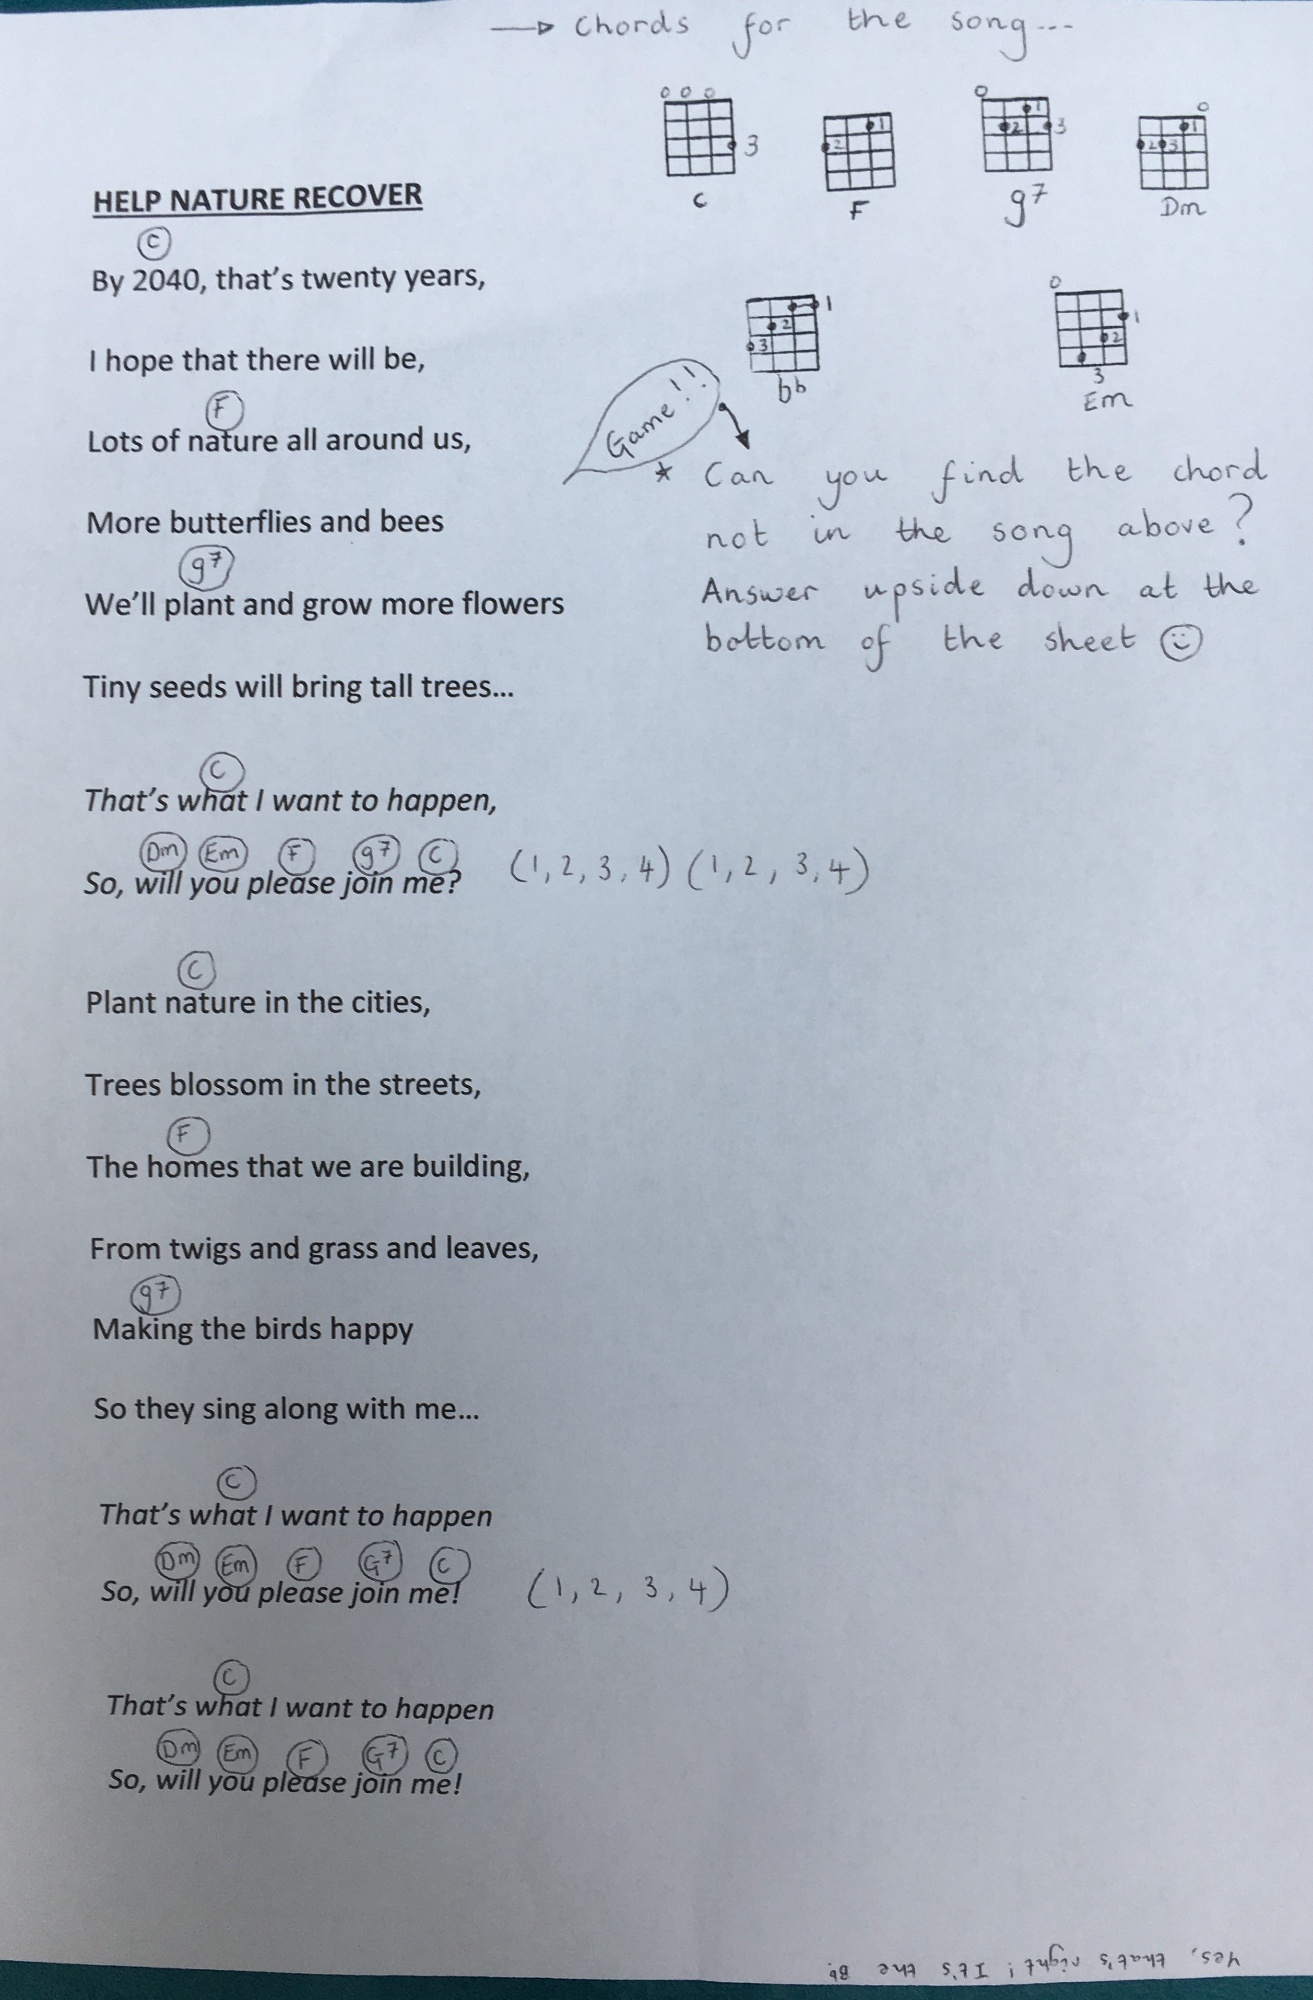 → Chords for the song...
o o o
3
C
1
2
F
o
1
2 3
g7
o
1
2 3
Dm
1
2
3
bb
o
1
2
3
Em
Game!!
* Can you find the chord
not in the song above?
Answer upside down at the
bottom of the sheet ☺
HELP NATURE RECOVER
C
By 2040, that's twenty years,
I hope that there will be,
F
Lots of nature all around us,
More butterflies and bees
g7
We'll plant and grow more flowers
Tiny seeds will bring tall trees...
C
That's what I want to happen,
Dm Em F g7 C
So, will you please join me? (1, 2, 3, 4) (1, 2, 3, 4)
C
Plant nature in the cities,
Trees blossom in the streets,
F
The homes that we are building,
From twigs and grass and leaves,
g7
Making the birds happy
So they sing along with me...
C
That's what I want to happen
Dm Em F G7 C
So, will you please join me! (1, 2, 3, 4)
C
That's what I want to happen
Dm Em F G7 C
So, will you please join me!
Yes, that's right! It's the Bb